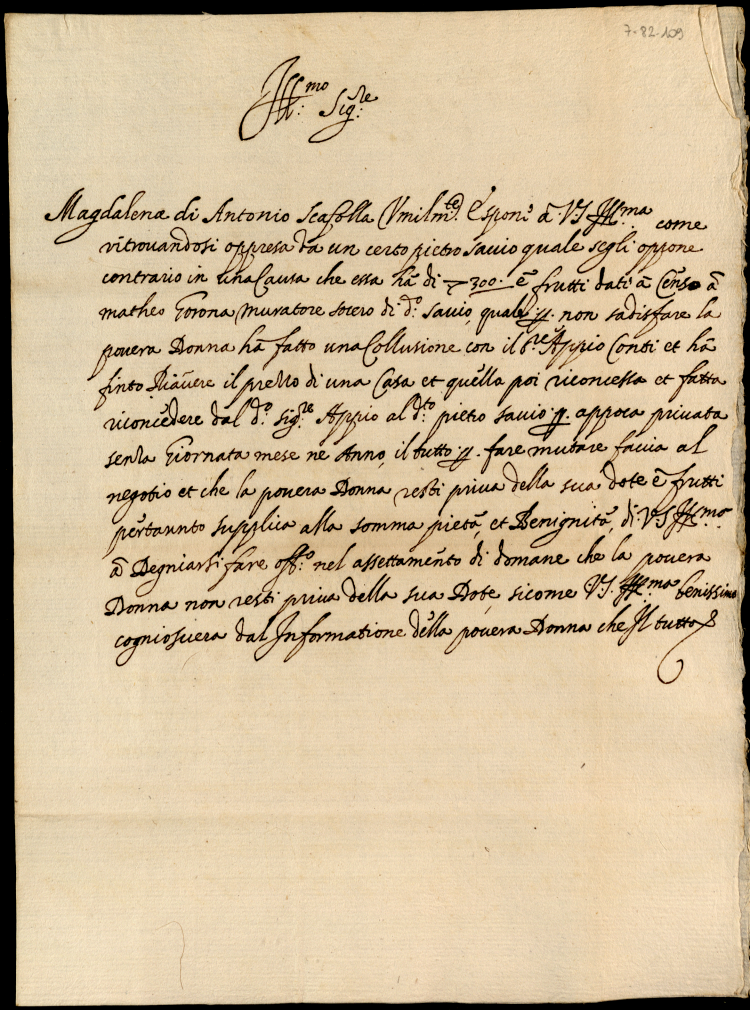 7-82-109
Ill:mo Sig:re
Magdalena di Antonio Scafolla Umilm:te Espon: à V.S Ill:ma come
ritrouandosi oppresa da un certo pietro sauio quale segli oppone
contrario in una Causa che essa hà di 300. è frutti dati à Censo à
matheo Gorona muratore socero di d:o sauio, quale p. non sadisfare la
pouera Donna hà fatto una Collusione con il s:re Appio Conti et hà
finto Riauere il prezzo di una Casa et quella poi riconcessa et fatta
riconcedere dal d:o sig:re Appio al d:to pietro sauio p. appoca priuata
senza Giornata mese ne Anno, il tutto p. fare mutare faccia al
negotio et che la pouera Donna resti priua della sua dote è frutti
pertannto supplica alla somma pietà, et Benignità, di V.S Ill:ma
à Degniarsi fare off:o nel assettamento di domane che la pouera
Donna non resti priua della sua Dote sicome V.S. Ill:ma benissimo
cogniosciera dal Informatione della pouera Donna che Il tutto